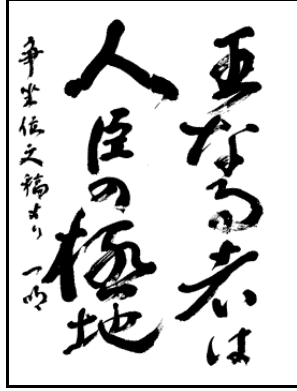 王なる者は
人臣の極地
争坐位文稿より